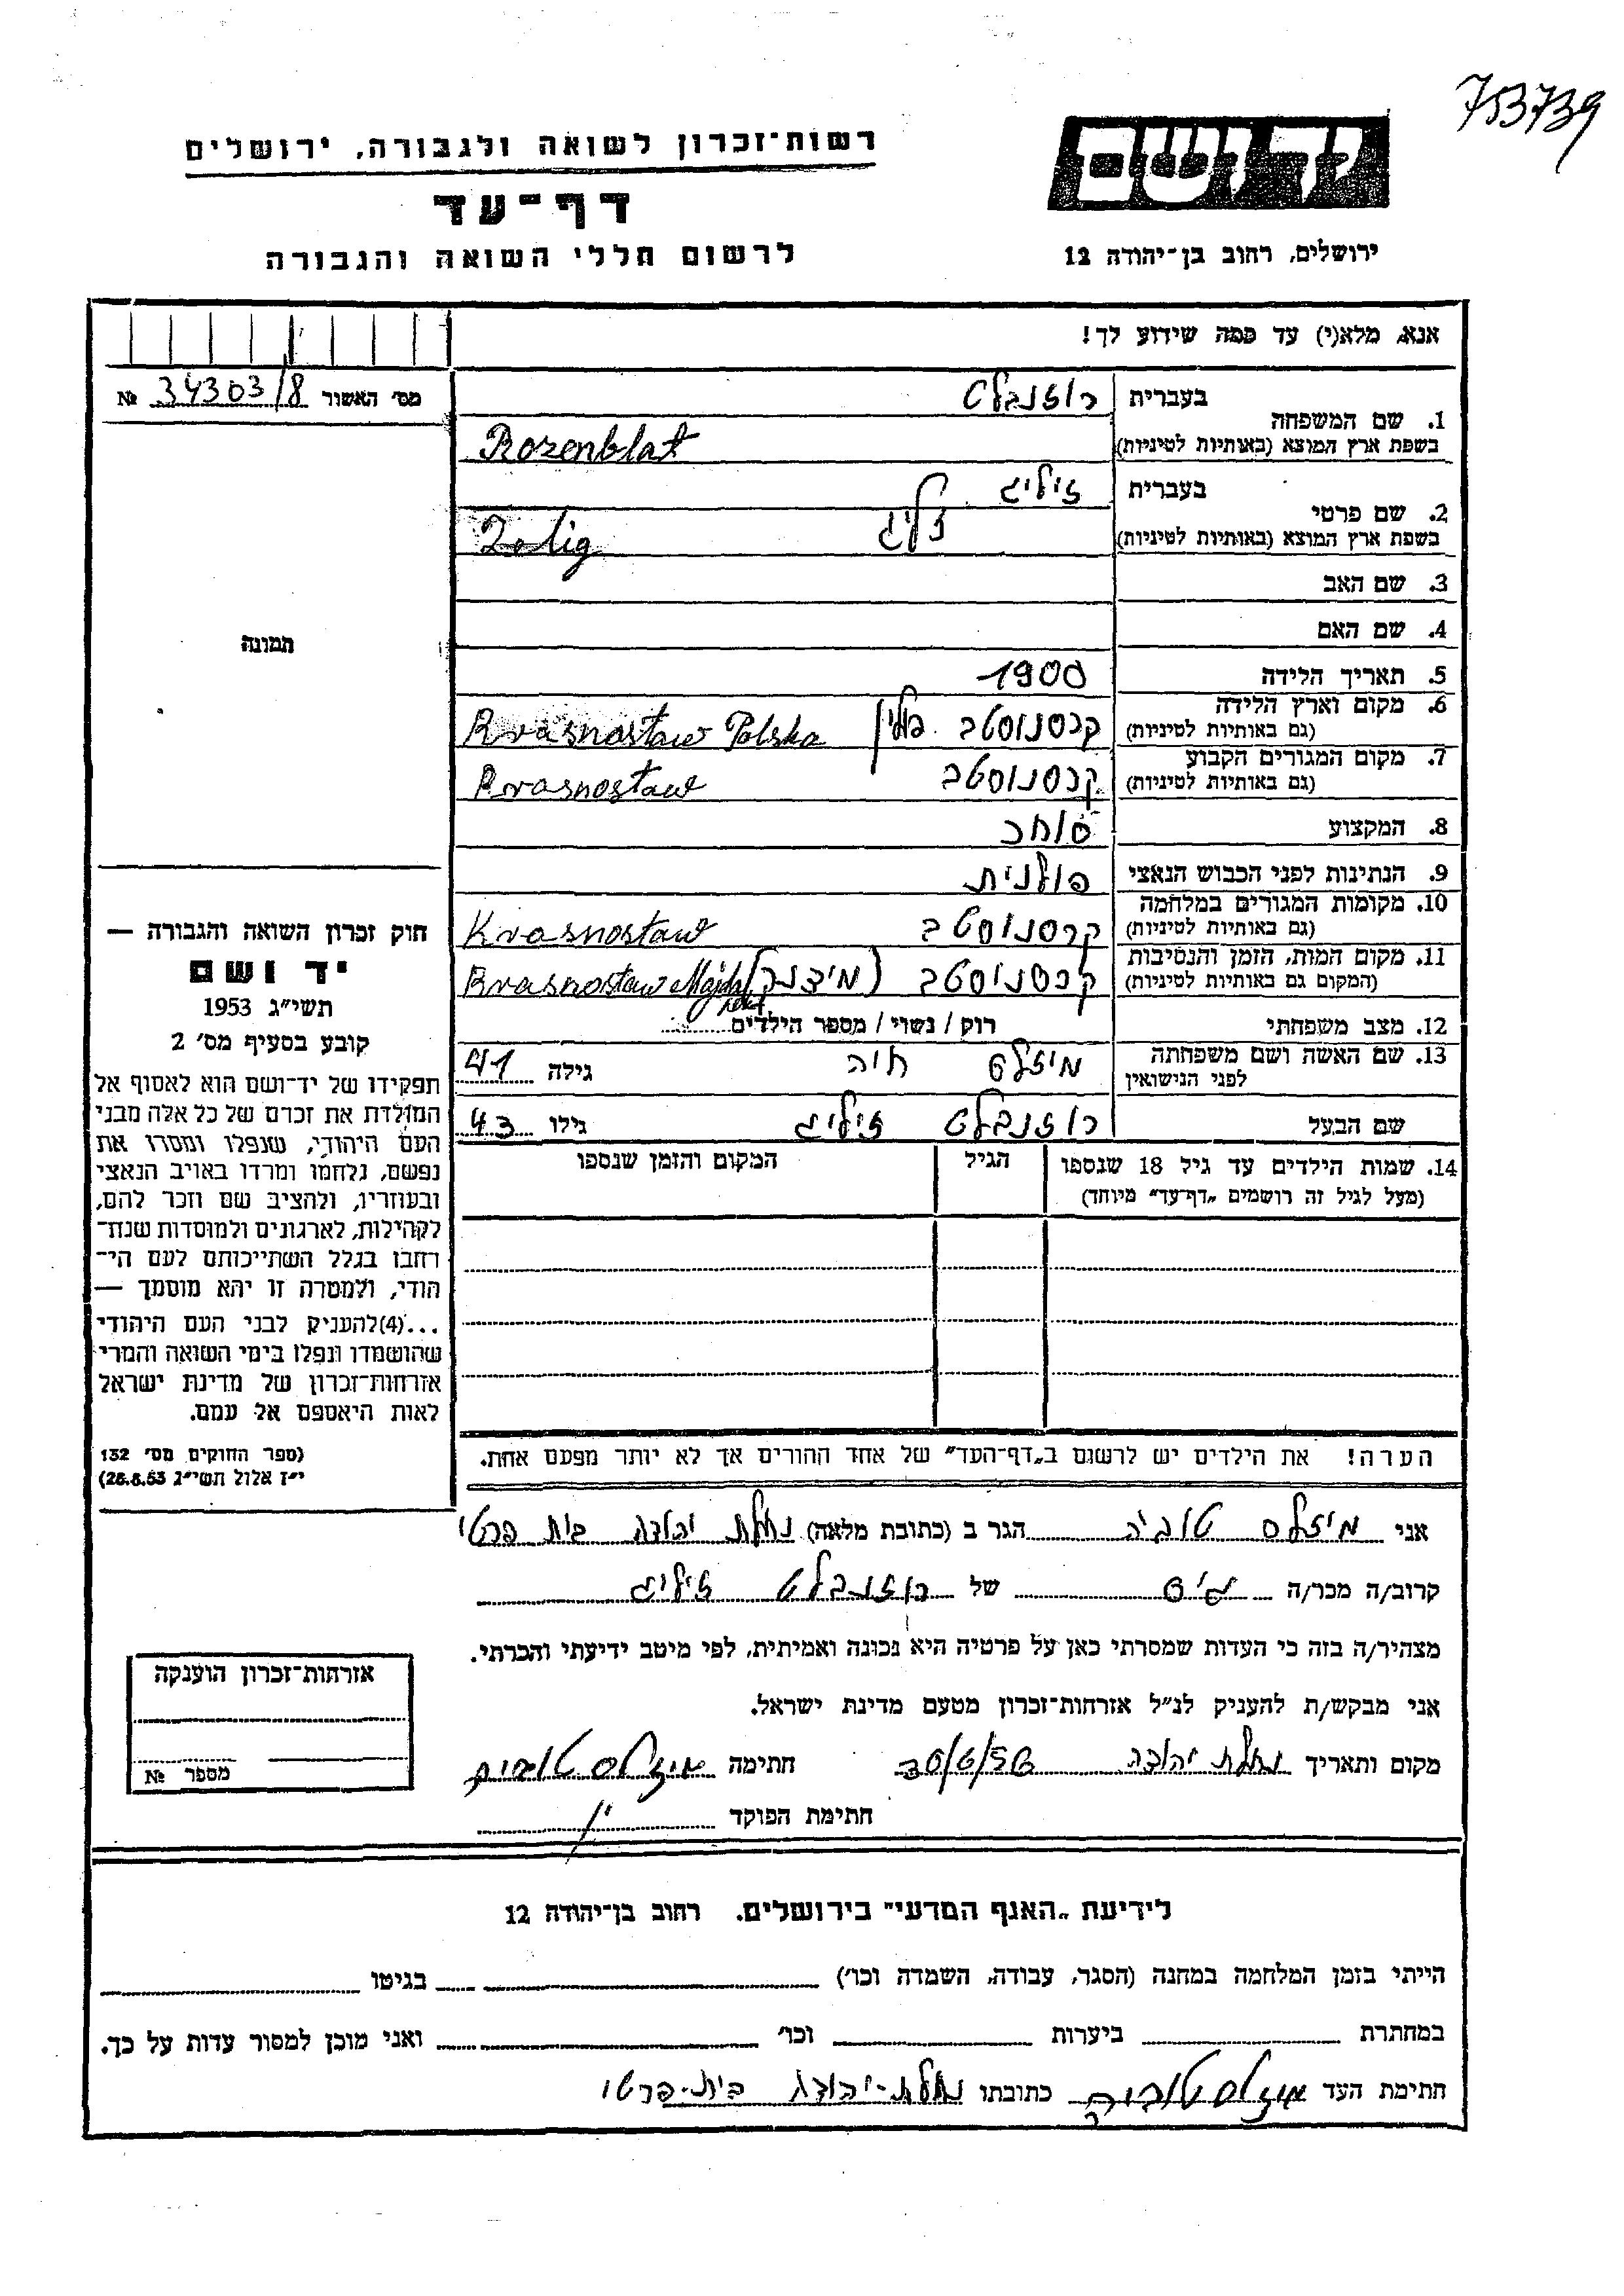 753739
יד ושם
ירושלים, רחוב בן־יהודה 12
רשות־זכרון לשואה ולגבורה, ירושלים
דף־עד
לרשום חללי השואה והגבורה
אנא, מלא(י) עד כמה שידוע לך!
מס' האשור 34303/8 №
1. שם המשפחה
בעברית רוזנבלט
בשפת ארץ המוצא (באותיות לטיניות) Rozenblat
2. שם פרטי
בעברית זיליג
בשפת ארץ המוצא (באותיות לטיניות) זליג Zelig
3. שם האב
4. שם האם
5. תאריך הלידה 1900
6. מקום וארץ הלידה
(גם באותיות לטיניות) קרסנוסטב פולין Krasnostaw Polska
7. מקום המגורים הקבוע
(גם באותיות לטיניות) קרסנוסטב Krasnostaw
8. המקצוע סוחר
9. הנתינות לפני הכבוש הנאצי פולנית
10. מקומות המגורים במלחמה
(גם באותיות לטיניות) קרסנוסטב Krasnostaw
11. מקום המות, הזמן והנסיבות
(המקום גם באותיות לטיניות) קרסנוסטב Krasnostaw
12. מצב משפחתי רוק / נשוי / מספר הילדים
13. שם האשה ושם משפחתה
לפני הנישואין מיזלס חוה גילה 41
שם הבעל רוזנבלט זיליג גילו 43
14. שמות הילדים עד גיל 18 שנספו
(מעל לגיל זה רושמים "דף־עד" מיוחד)
הגיל
המקום והזמן שנספו
הערה! את הילדים יש לרשום ב"דף־העד" של אחד ההורים אך לא יותר מפעם אחת.
תמונה
חוק זכרון השואה והגבורה —
יד ושם
תשי"ג 1953
קובע בסעיף מס' 2
תפקידו של יד־ושם הוא לאסוף אל
המולדת את זכרם של כל אלה מבני
העם היהודי, שנפלו ומסרו את
נפשם, נלחמו ומרדו באויב הנאצי
ובעוזריו, ולהציב שם וזכר להם,
לקהילות, לארגונים ולמוסדות שנח־
רבו בגלל השתייכותם לעם הי־
הודי, ולמטרה זו יהא מוסמך —
...(4)להעניק לבני העם היהודי
שהושמדו ונפלו בימי השואה והמרי
אזרחות־זכרון של מדינת ישראל
לאות היאספם אל עמם.
(ספר החוקים מס' 132
י"ז אלול תשי"ג 28.8.53)
אני מיזלס טוביה הגר ב (כתובת מלאה) נחלת יהודה בית פרטי
קרוב/ה מכר/ה גיס של רוזנבלט זיליג
מצהיר/ה בזה כי העדות שמסרתי כאן על פרטיה היא נכונה ואמיתית, לפי מיטב ידיעתי והכרתי.
אני מבקש/ת להעניק לנ"ל אזרחות־זכרון מטעם מדינת ישראל.
מקום ותאריך נחלת יהודה 30/6/56 חתימה מיזלס טוביה
חתימת הפוקד
אזרחות־זכרון הוענקה
מספר №
לידיעת "האגף המדעי" בירושלים, רחוב בן־יהודה 12
הייתי בזמן המלחמה במחנה (הסגר, עבודה, השמדה וכו') בגיטו
במחתרת ביערות וכו' ואני מוכן למסור עדות על כך.
חתימת העד מיזלס טוביה כתובתו נחלת-יהודה בית-פרטי